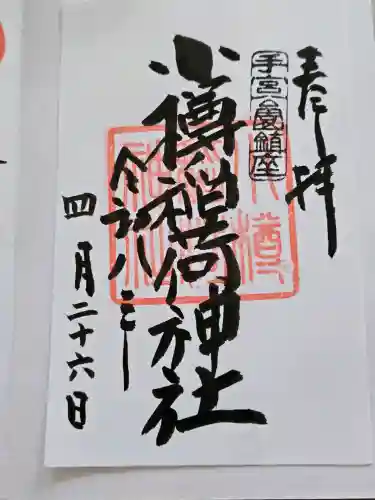 奉拝
手宮公園鎮座
小樽稲荷神社
令和八年
四月二十六日